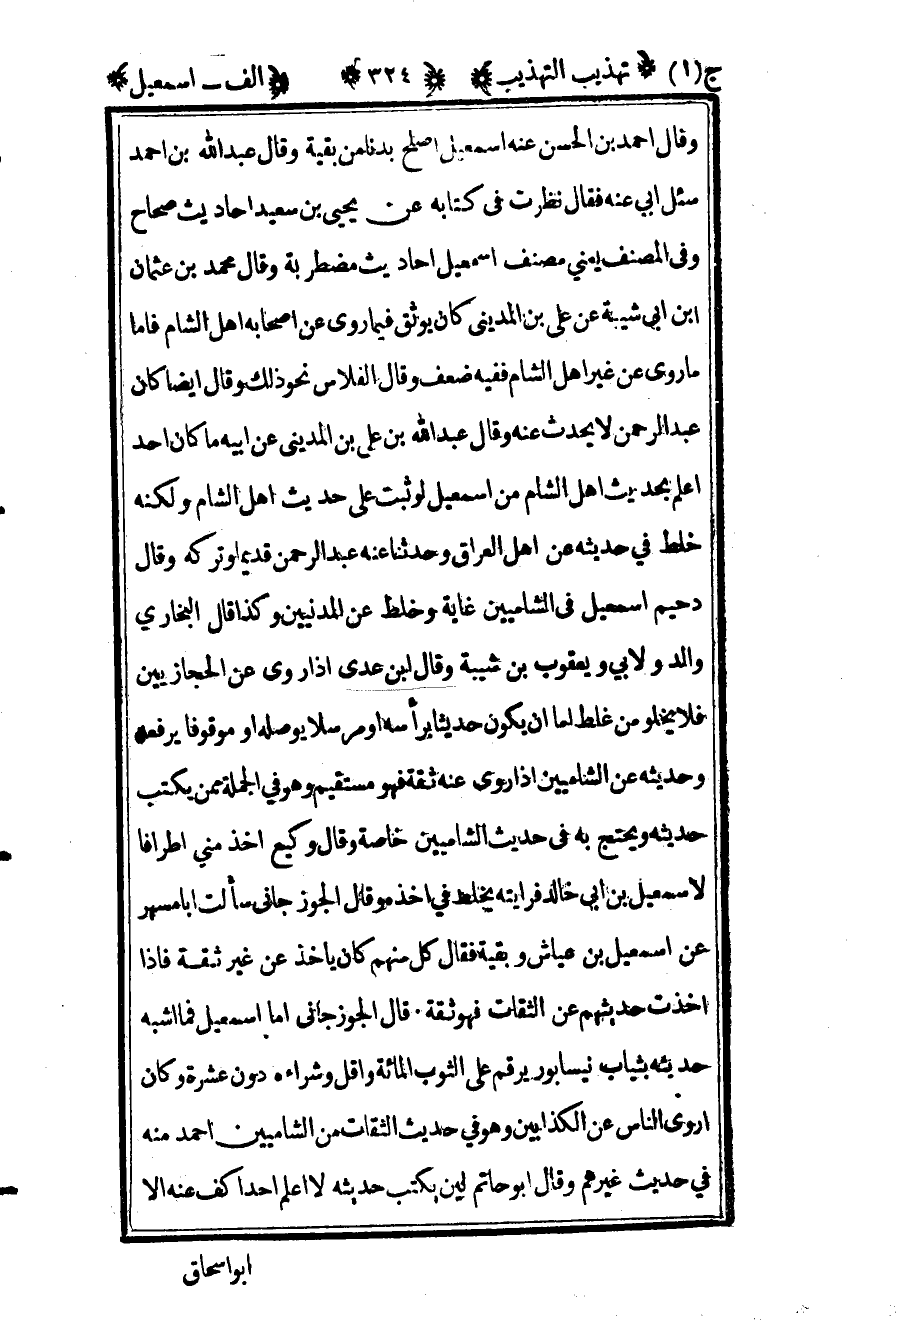 ج(١) ﴿تهذيب التهذيب﴾ ﴿٣٢٤﴾ ﴿الف ــ اسمعيل﴾
وقال احمد بن الحسن عنه اسمعيل اصلح بدنا من بقية وقال عبدالله بن احمد
سئل ابي عنه فقال نظرت فى كتابه عن يحيى بن سعيد احاديث صحاح
وفى المصنف يعني مصنف اسمعيل احاديث مضطربة وقال محمد بن عثمان
ابن ابي شيبة عن على بن المدينى كان يوثق فيما روى عن اصحابه اهل الشام فاما
ماروى عن غير اهل الشام ففيه ضعف وقال الفلاس نحو ذلك وقال ايضا كان
عبدالرحمن لا يحدث عنه وقال عبدالله بن على بن المدينى عن ابيه ما كان احد
اعلم بحديث اهل الشام من اسمعيل لو ثبت على حديث اهل الشام ولكنه
خلط في حديثه عن اهل العراق وحدثنا عنه عبدالرحمن قديما وتركه وقال
دحيم اسمعيل فى الشاميين غاية وخلط عن المدنيين وكذا قال البخاري
والدولابي ويعقوب بن شيبة وقال ابن عدى اذا روى عن الحجازيين
فلا يخلو من غلط اما ان يكون حديثا برأسه او مرسلا يوصله او موقوفا يرفعه
وحديثه عن الشاميين اذا روى عنه ثقة فهو مستقيم وهو في الجملة ممن يكتب
حديثه ويحتج به فى حديث الشاميين خاصة وقال وكيع اخذ مني اطرافا
لاسمعيل بن ابي خالد فرايته يخلط في اخذه وقال الجوزجانى سألت ابا مسهر
عن اسمعيل بن عياش وبقية فقال كل منهم كان ياخذ عن غير ثقة فاذا
اخذت حديثهم عن الثقات فهو ثقة · قال الجوزجانى اما اسمعيل فما اشبه
حديثه بثياب نيسابور يرقم على الثوب المائة واقل وشراءه دون عشرة وكان
اروى الناس عن الكذابين وهو في حديث الثقات من الشاميين احمد منه
في حديث غيرهم وقال ابو حاتم لين يكتب حديثه لا اعلم احدا كف عنه الا
ابو اسحاق